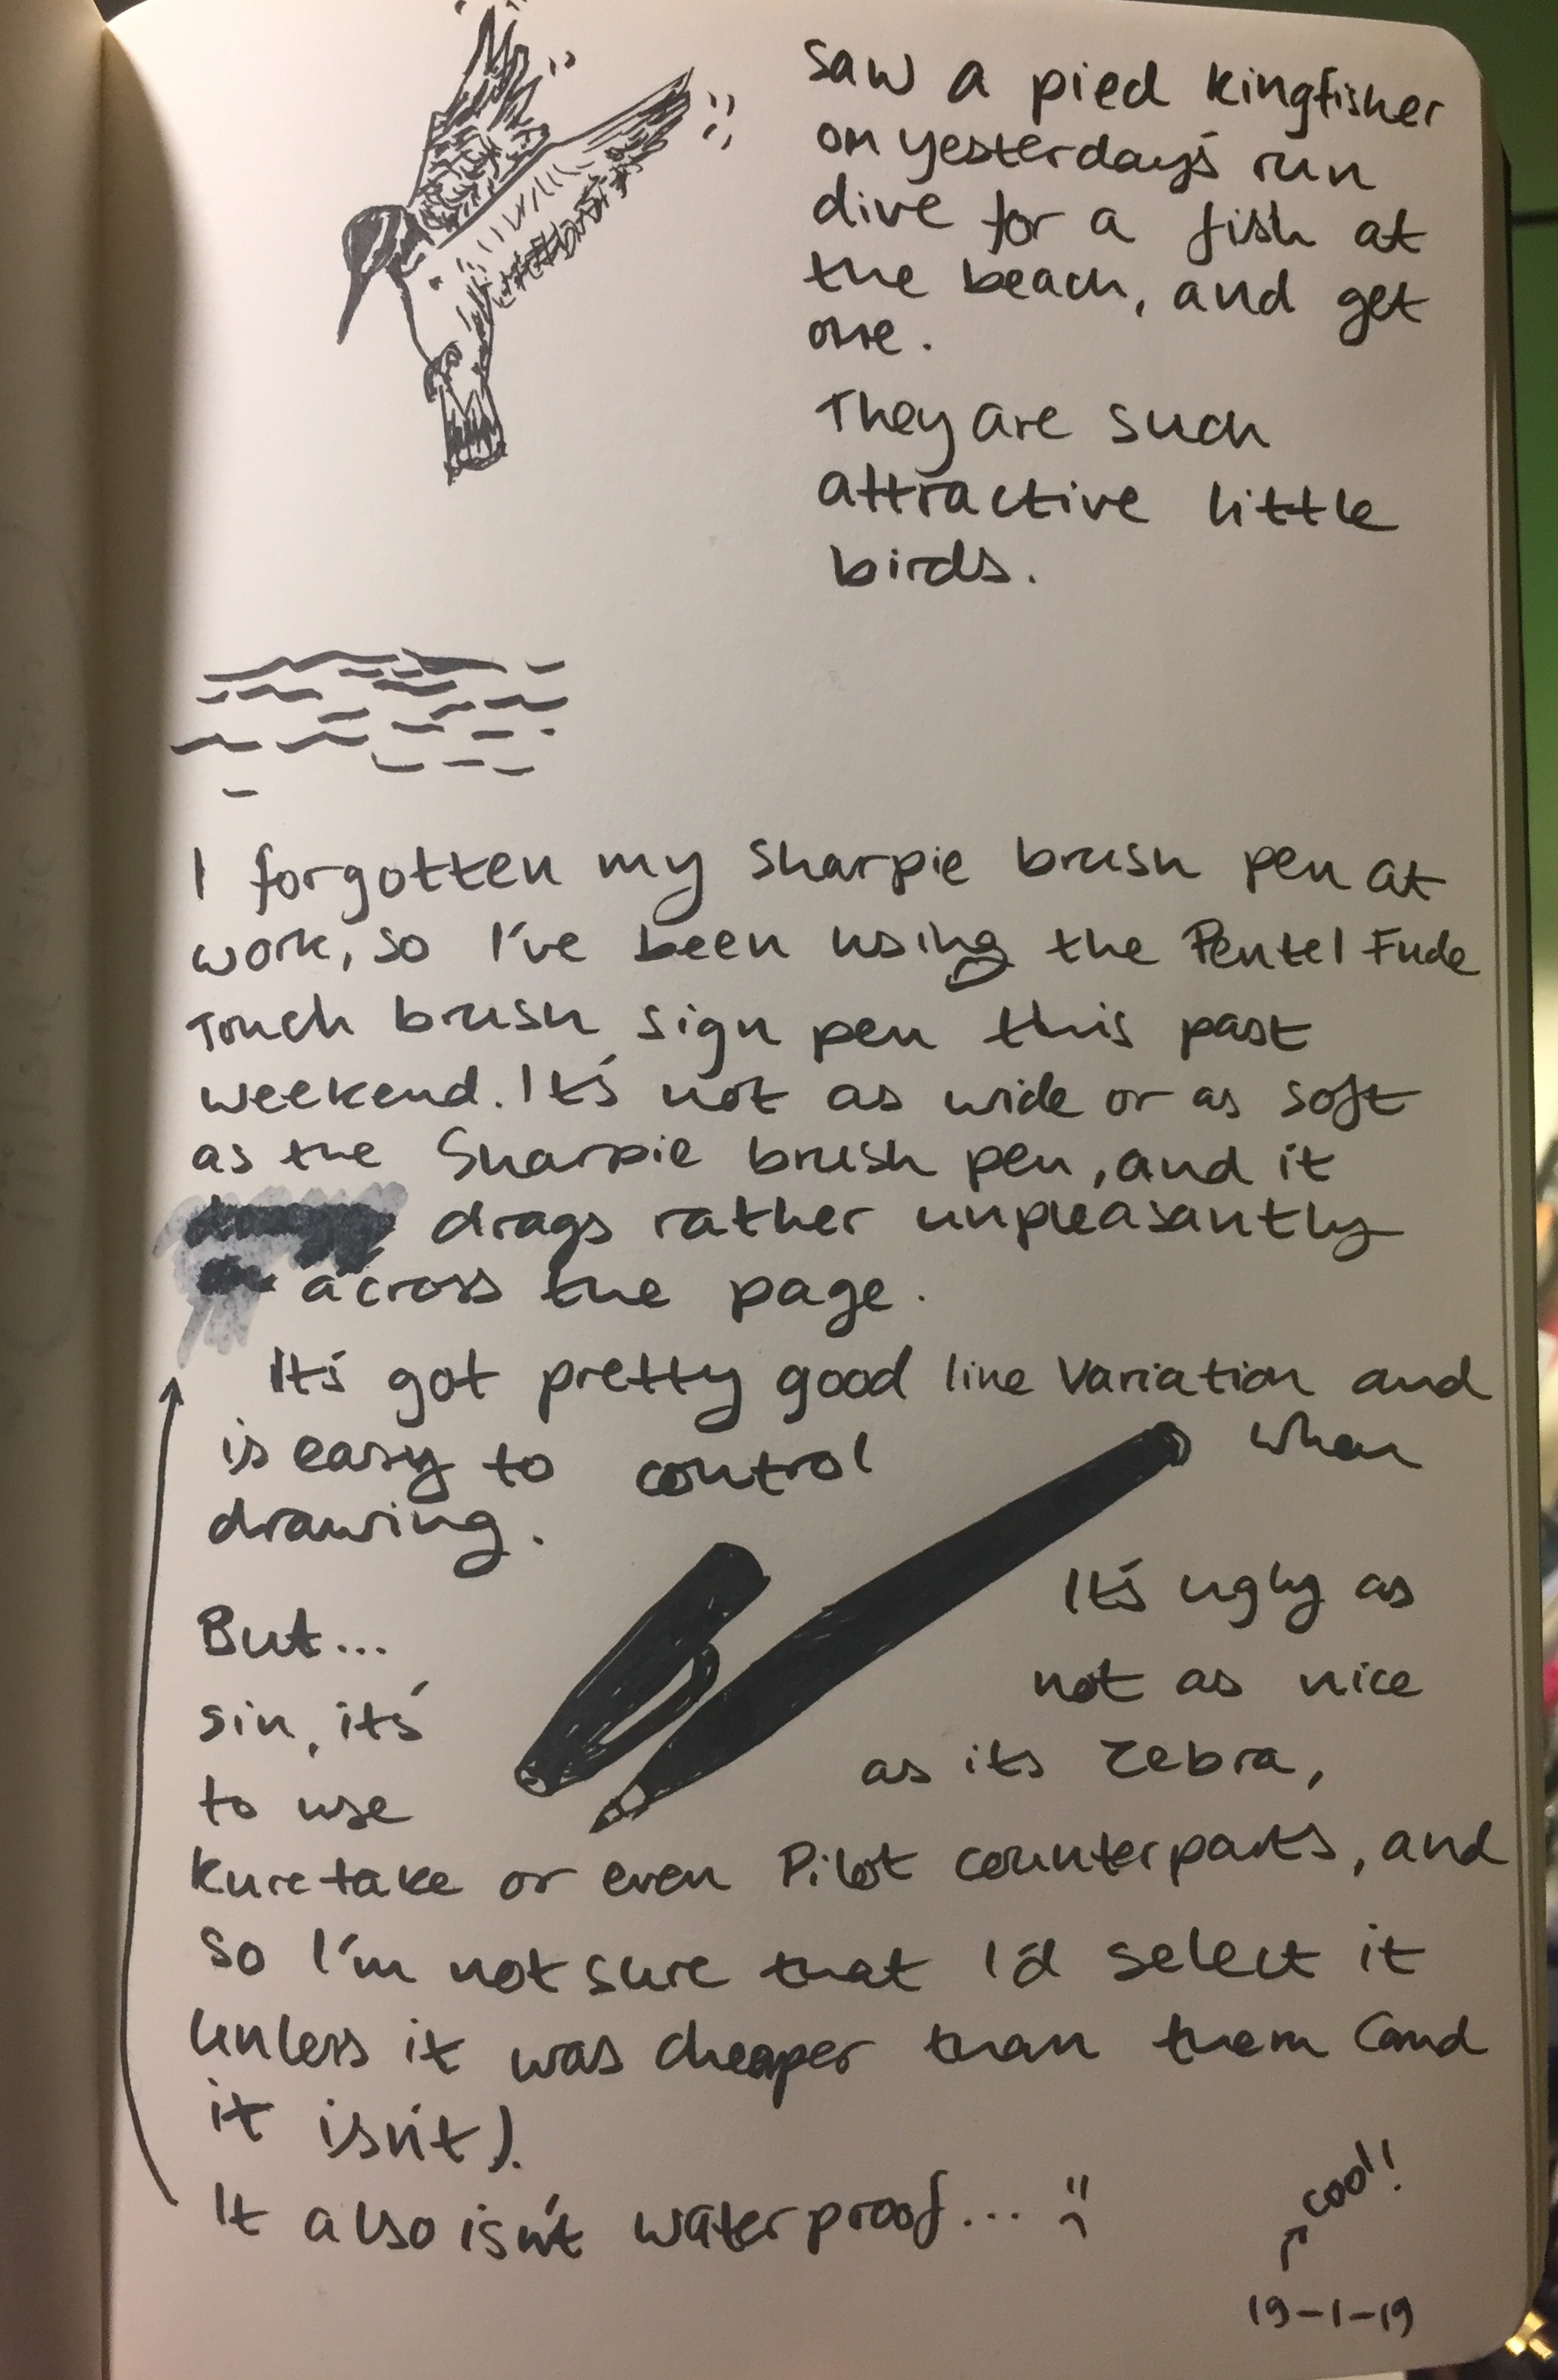 saw a pied kingfisher
on yesterday's run
dive for a fish at
the beach, and get
one.
They are such
attractive little
birds.
I forgotten my Sharpie brush pen at
work, so I've been using the Pentel Fude
Touch brush sign pen this past
weekend. It's not as wide or as soft
as the Sharpie brush pen, and it
drags rather unpleasantly
across the page.
It's got pretty good line variation and
is easy to control when
drawing.
But... It's ugly as
sin, it's not as nice
to use as its Zebra,
Kuretake or even Pilot counterparts, and
so I'm not sure that I'd select it
unless it was cheaper than them (and
it isn't).
It also isn't waterproof... :(
cool!
19-1-19